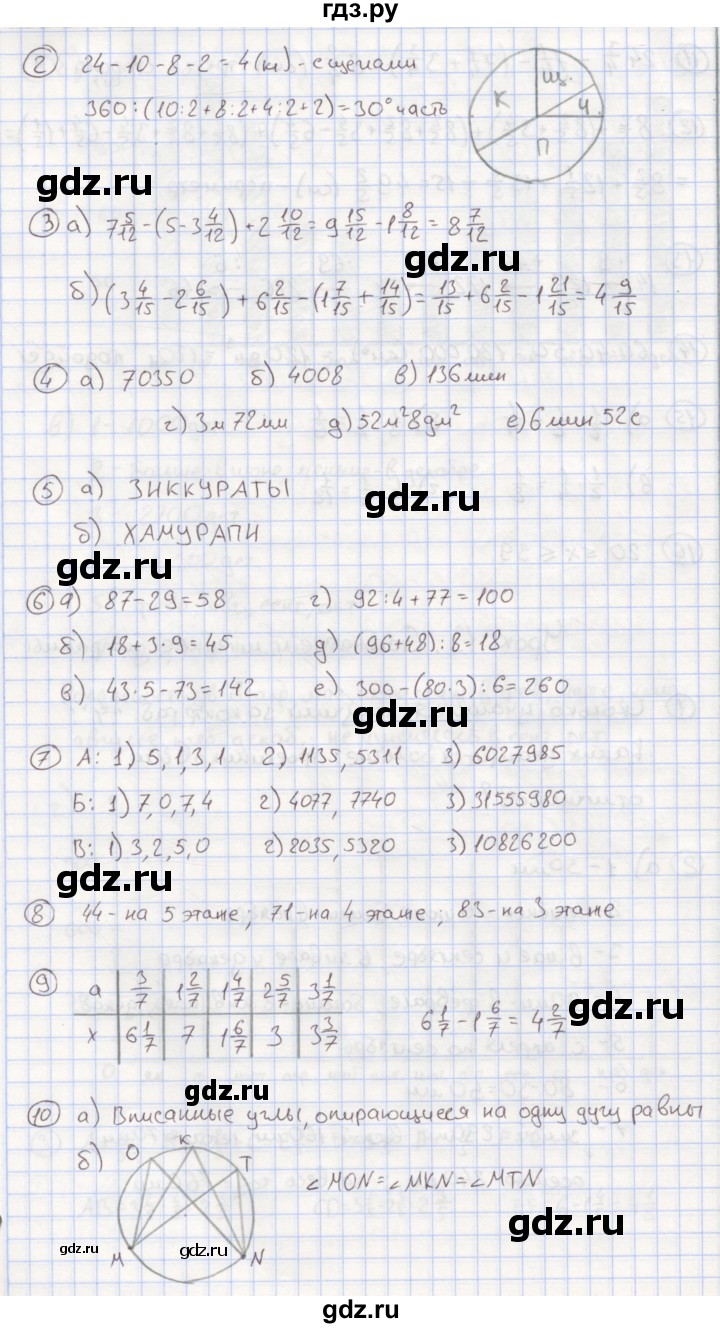 гдз.ру
② 24-10-8-2=4(кл)-с щенами
360:(10:2+8:2+4:2+2)=30° часть
К Щ. Ч. П
gdz.ru
③ а) 7 5/12-(5-3 4/12)+2 10/12=9 15/12-1 8/12=8 7/12
gdz.ru
б) (3 4/15-2 6/15)+6 2/15-(1 7/15+14/15)=13/15+6 2/15-1 21/15=4 9/15
④ а) 70350 б) 4008 в) 136 мин
г) 3м 72мм д) 52м² 8дм² е) 6 мин 52с
⑤ а) ЗИККУРАТЫ
gdz.ru
б) ХАМУРАПИ
gdz.ru
⑥ а) 87-29=58 г) 92:4+77=100
б) 18+3·9=45 д) (96+48):8=18
в) 43·5-73=142 е) 300-(80·3):6=260
gdz.ru
⑦ А: 1) 5,1,3,1 2) 1135, 5311 3) 6027985
Б: 1) 7,0,7,4 2) 4077, 7740 3) 31555980
В: 1) 3,2,5,0 2) 2035, 5320 3) 10826200
gdz.ru
⑧ 44-на 5 этаже; 71-на 4 этаже, 83-на 3 этаже
⑨ а 3/7 1 2/7 1 4/7 2 5/7 3 1/7
х 6 1/7 7 1 6/7 3 3 3/7
6 1/7-1 6/7=4 2/7
gdz.ru
⑩ а) Вписанные углы, опирающиеся на одну дугу равны
б) O K T M N
∠MON=∠MKN=∠MTN
gdz.ru
gdz.ru
gdz.ru
gdz.ru